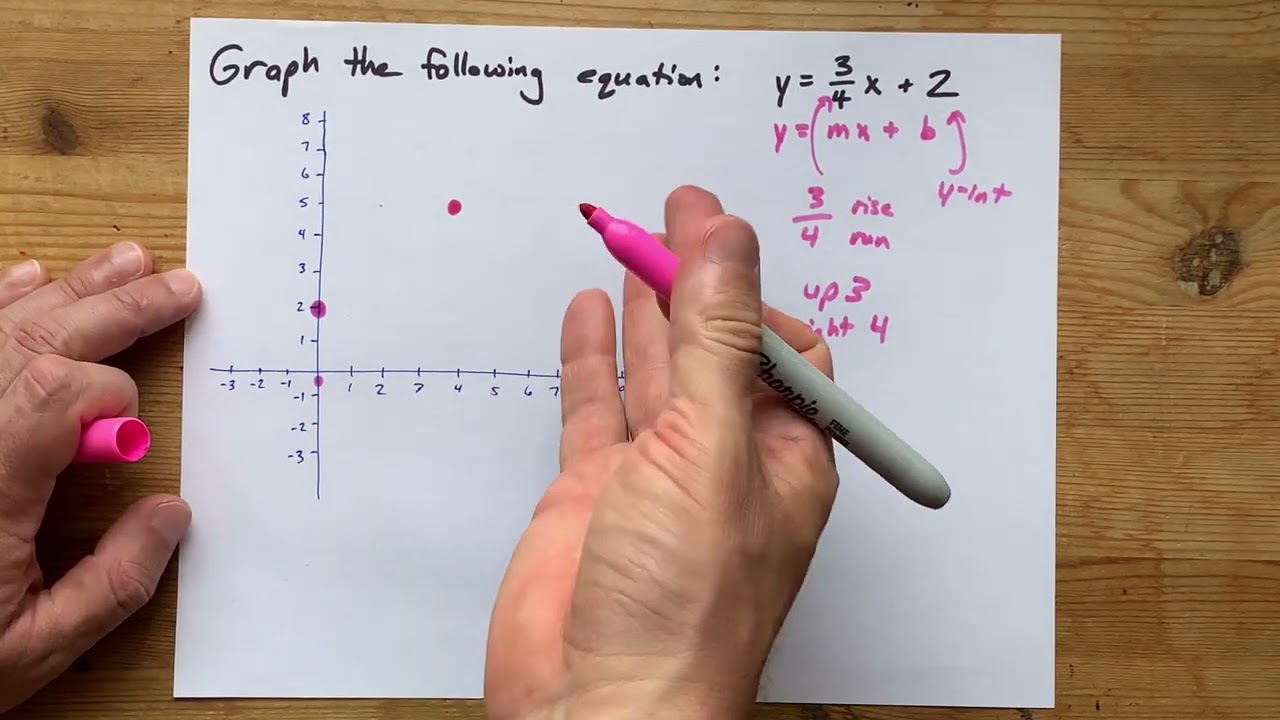 Graph the following equation: y = 3/4 x + 2
y = mx + b
y-int
3/4 rise run
up 3
right 4
8
7
6
5
4
3
2
1
-3 -2 -1 1 2 3 4 5 6 7
-1
-2
-3
Sharpie
FINE POINT